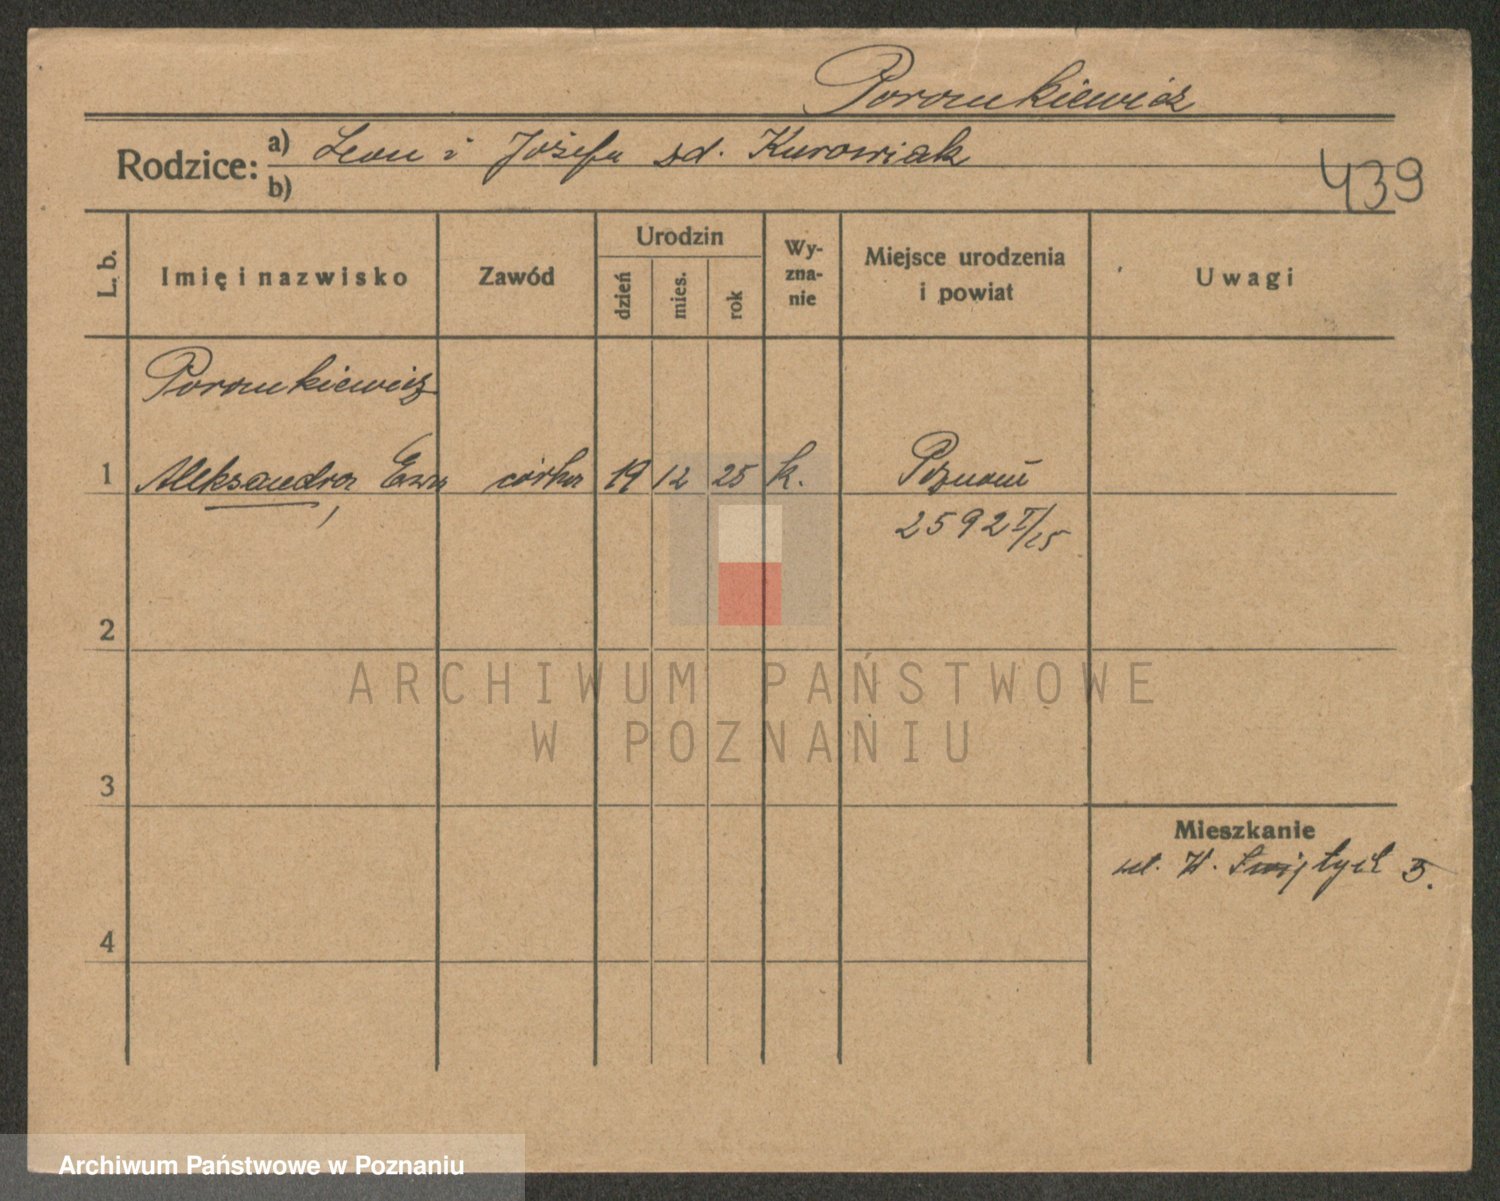 Poronkiewicz
Rodzice: a) Leon i Józefa sd. Kurowiak
b)
439
L. b.
Imię i nazwisko
Zawód
Urodzin
dzień
mies.
rok
Wy-
zna-
nie
Miejsce urodzenia
i powiat
Uwagi
Poronkiewicz
1 Aleksandra, Ewa córka 19 12 25 k. Poznań
2592 I/25
2
3
4
Mieszkanie
ul. W. Świętych 5.
ARCHIWUM PAŃSTWOWE
W POZNANIU
Archiwum Państwowe w Poznaniu